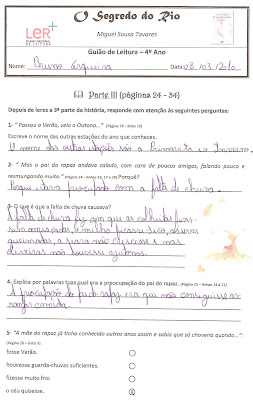 LeR+
PLANO NACIONAL DE LEITURA
O Segredo do Rio
Miguel Sousa Tavares
Guião de Leitura – 4º Ano
Nome: Bruno Cerqueira Data: 08/03/2010
Parte III (páginas 24 - 34)
Depois de leres a 3ª parte da história, responde com atenção às seguintes perguntas:
1- "Passou o Verão, veio o Outono..." (Página 24 – linha 10)
Escreve o nome das outras estações do ano que conheces.
O nome das outras estações são a Primavera e o Inverno.
2- "Mas o pai do rapaz andava calado, com cara de poucos amigos, falando pouco e
resmungando muito." Porquê?
Porque estava preocupado com a falta de chuva.
3- O que é que a falta de chuva causava?
A falta da chuva fez com que as colheitas
o milho ficasse seco, as
queimadas, a seara não crescesse e nas
4- Explica por palavras tuas qual era a preocupação do pai do rapaz.
A preocupação do pai do rapaz era que não conseguisse
comida.
5- "A mãe do rapaz já tinha conhecido outros anos assim e sabia que só choveria quando..."
fosse Verão.
houvesse guarda-chuvas suficientes.
fizesse muito frio
o céu quisesse.